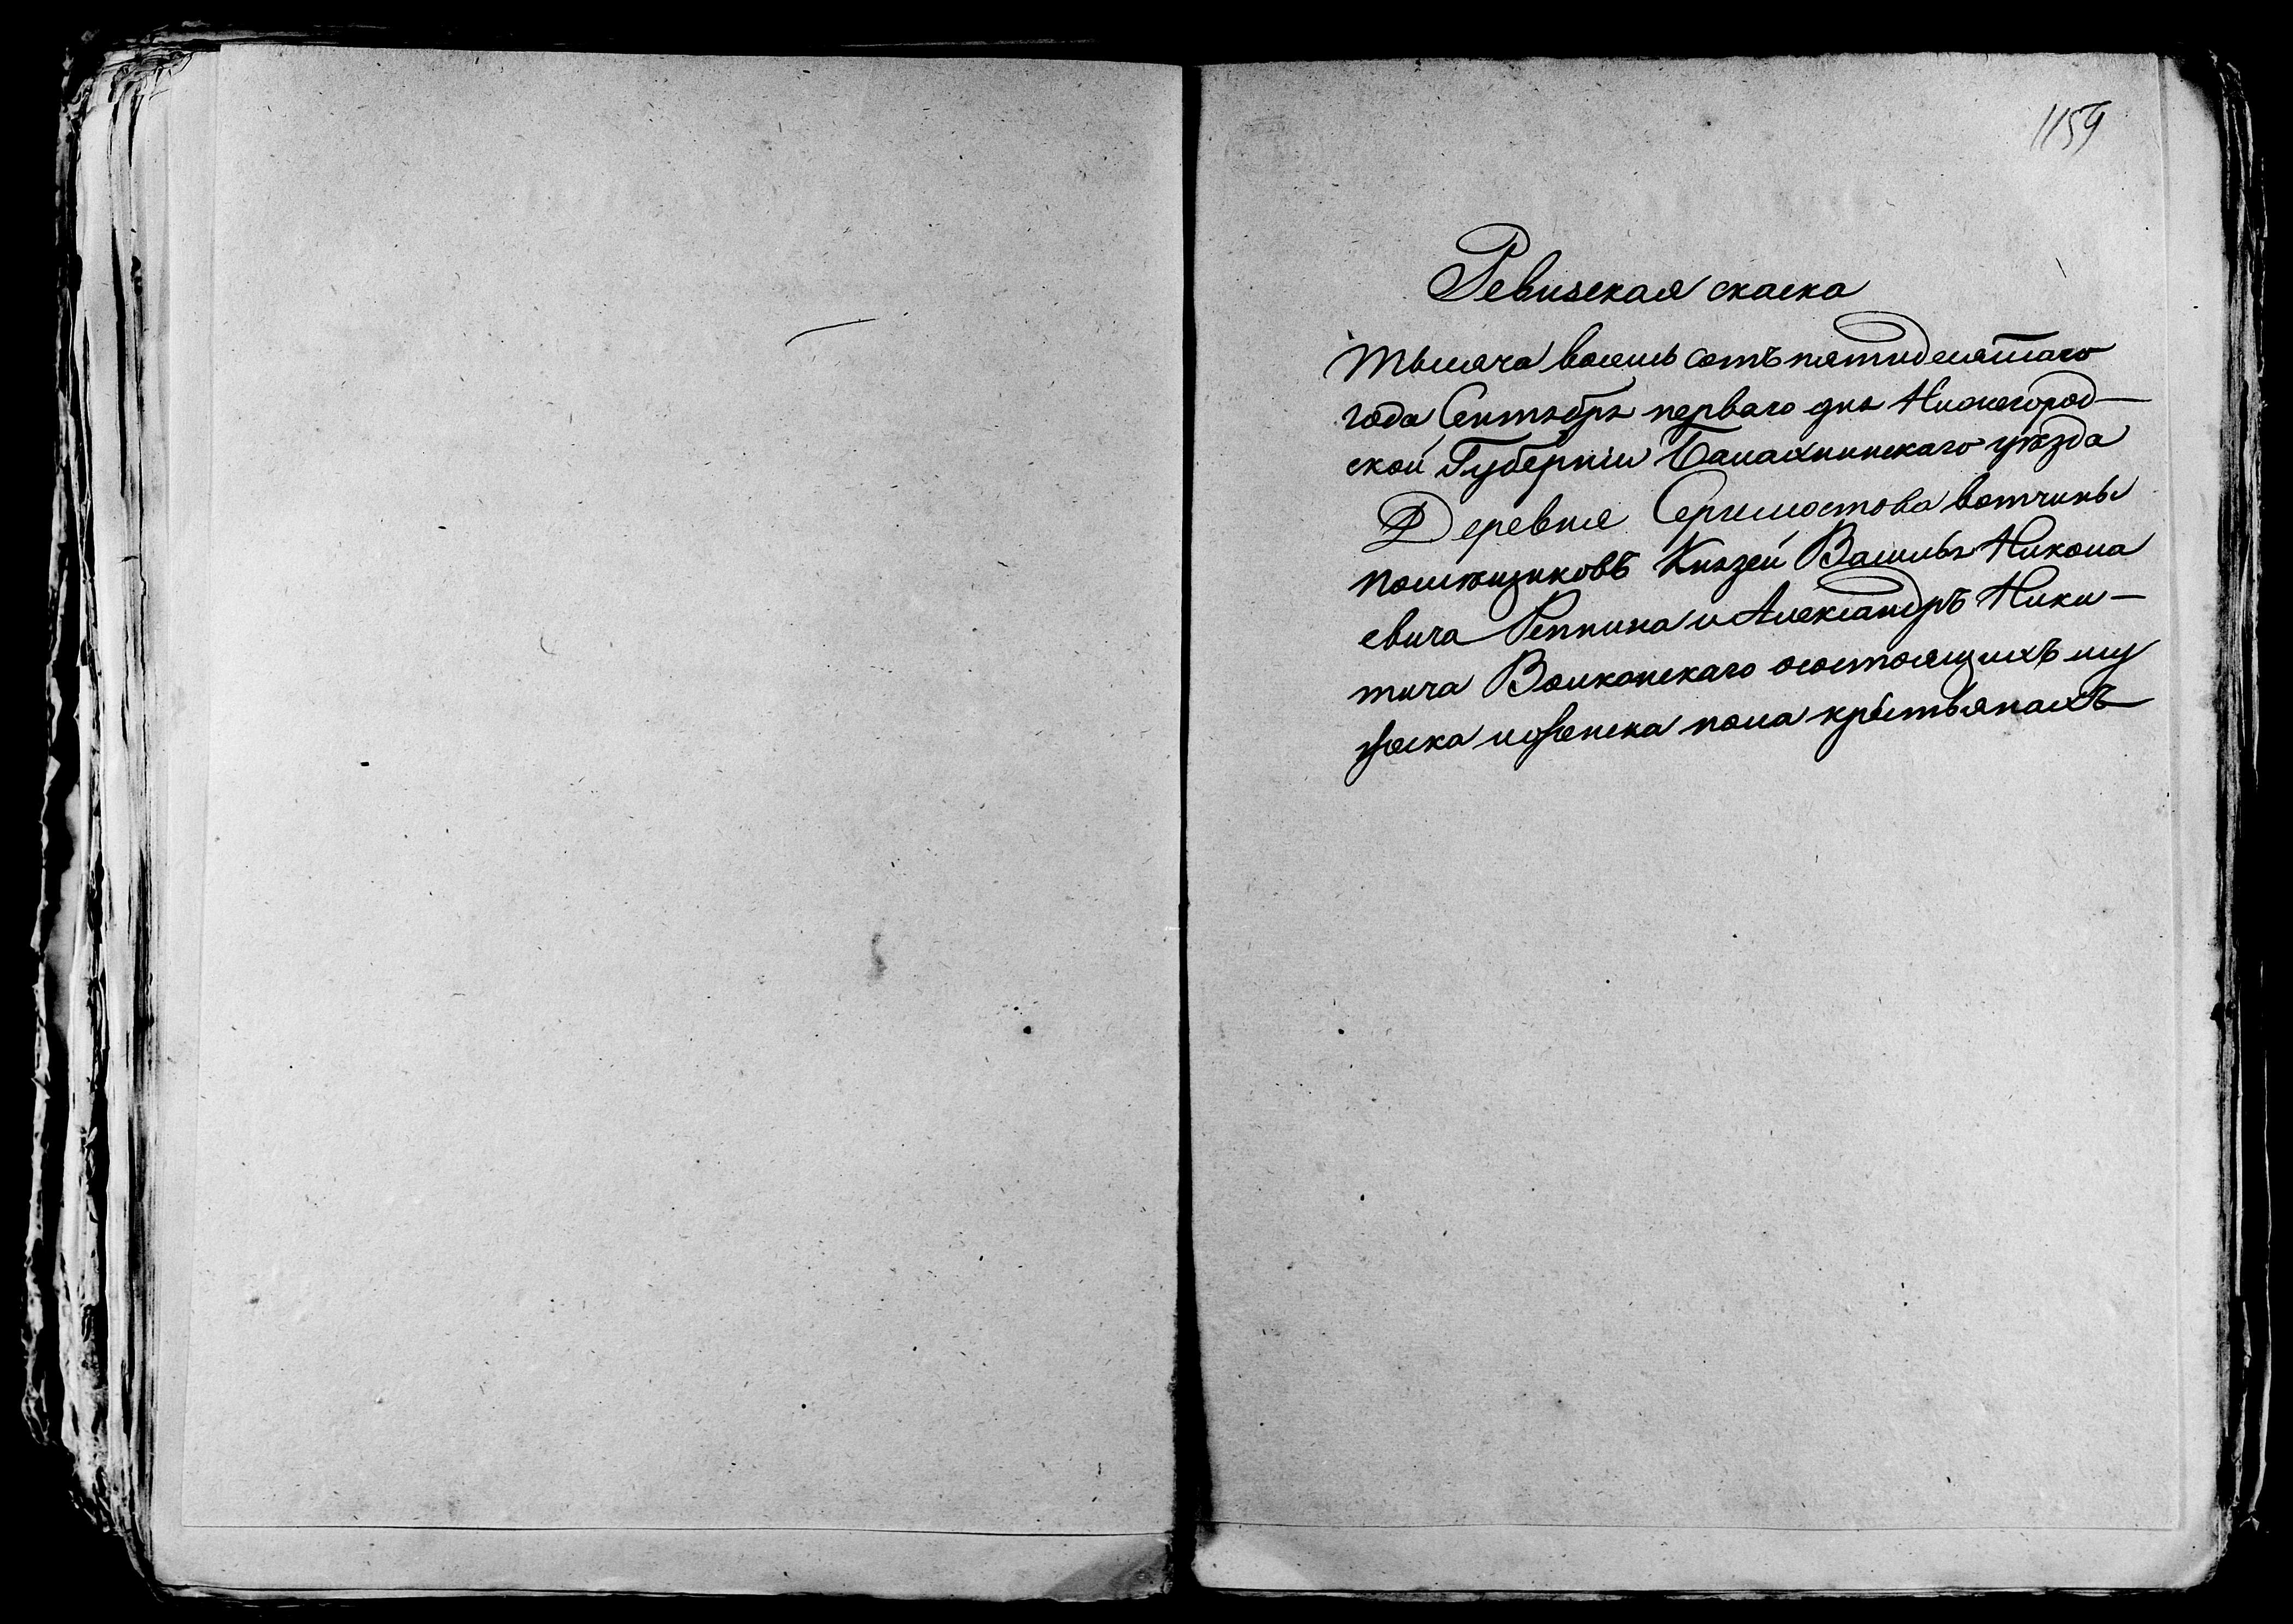 1159
Ревизская скаска
тысяча восемь сотъ пятидесятаго
года Сентября перваго дня Нижегород-
ской Губерніи Балахнинскаго уѣзда
Деревня Серимостова вотчины
помѣщиковъ Князей Василья Никола
евича Репнина и Александръ Ники-
тича Волконскаго осостоящихъ му
жеска и женска пола крестьянахъ